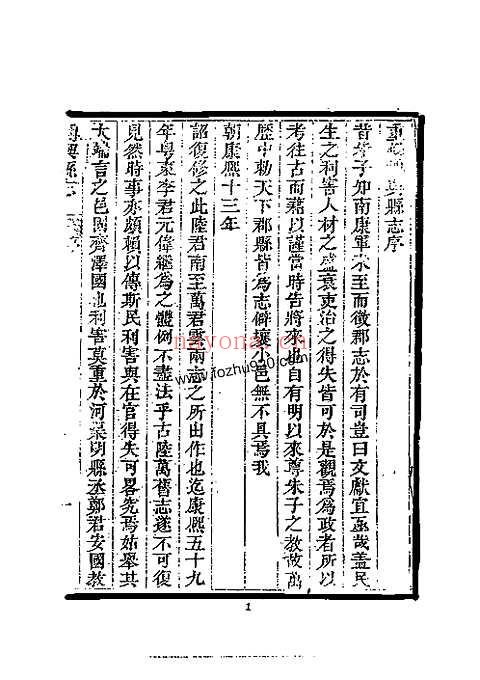 重修興縣志序
昔朱子知南康軍未至而徵郡志於有司豈曰文獻宜亟哉蓋民
生之利害人材之盛衰吏治之得失皆可於是觀焉為政者所以
考往古而藉以謹當時告將來也自有明以來尊朱子之教故萬
歷中勅天下郡縣皆為志僻壤小邑無不具焉我
朝康熙十三年
詔復修之此陸君南至萬君雲兩志之所由作也迄康熙五十九
年粵東李君元偉繼為之體例不盡法乎古陸萬舊志遂不可復
見然時事亦頗賴以傳斯民利害與在官得失可畧究焉姑舉其
大端言之邑固齊澤國也利害莫重於河渠明縣丞鄭君安國教
興縣志 序 一
nayona.cn
www.fozhu920.com
1